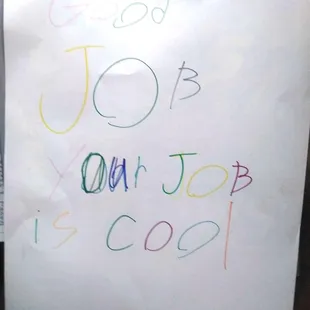 Good
JOB
YOUr JOB
is COOl